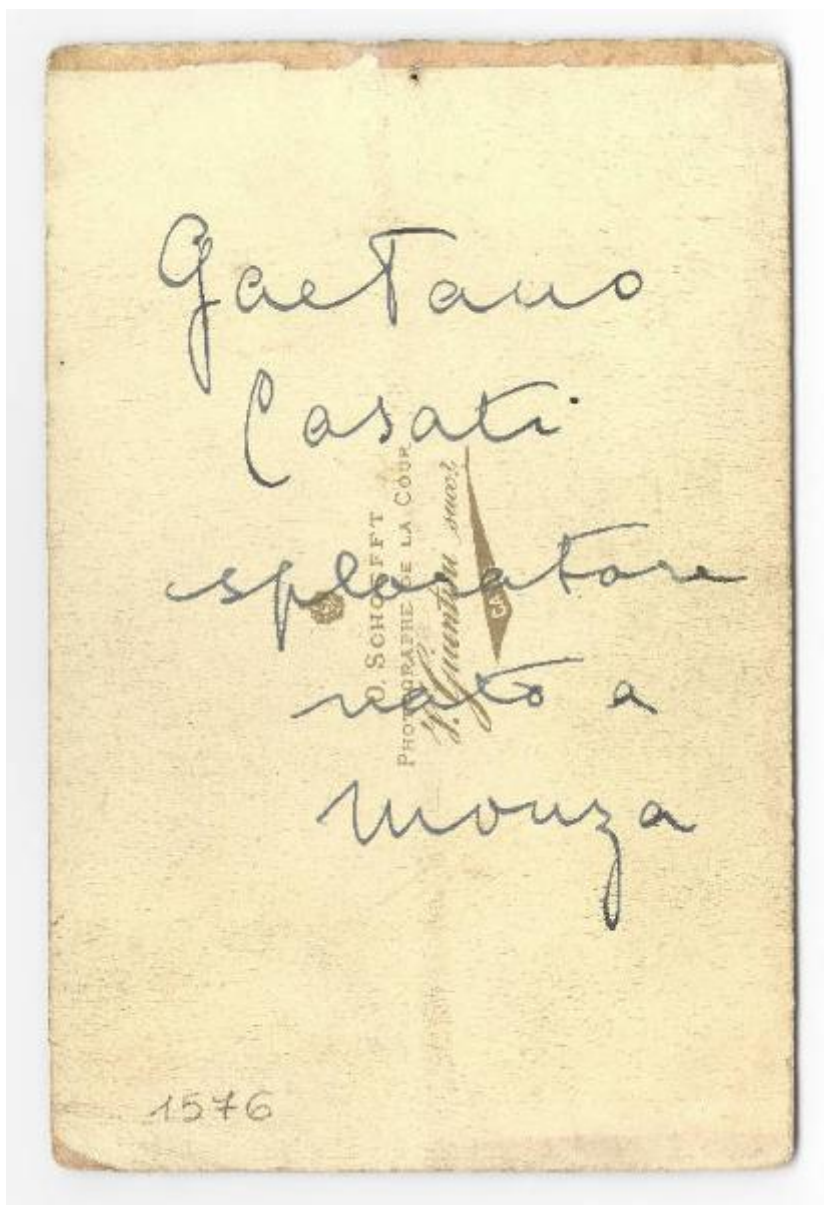 Gaetano
Casati
esploratore
nato a
Monza
O. SCHOEFFT
PHOTOGRAPHE DE LA COUR
succ.r
1576